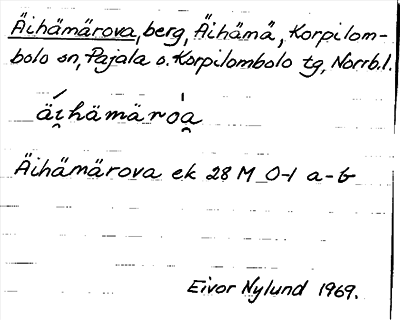 Äihämärova, berg, Äihämä, Korpilom-
bolo sn, Pajala o. Korpilombolo tg, Norrb.l.
ä́i̯hämäro̍a̯
Äihämärova ek 28 M 0-1 a-b
Eivor Nylund 1969.